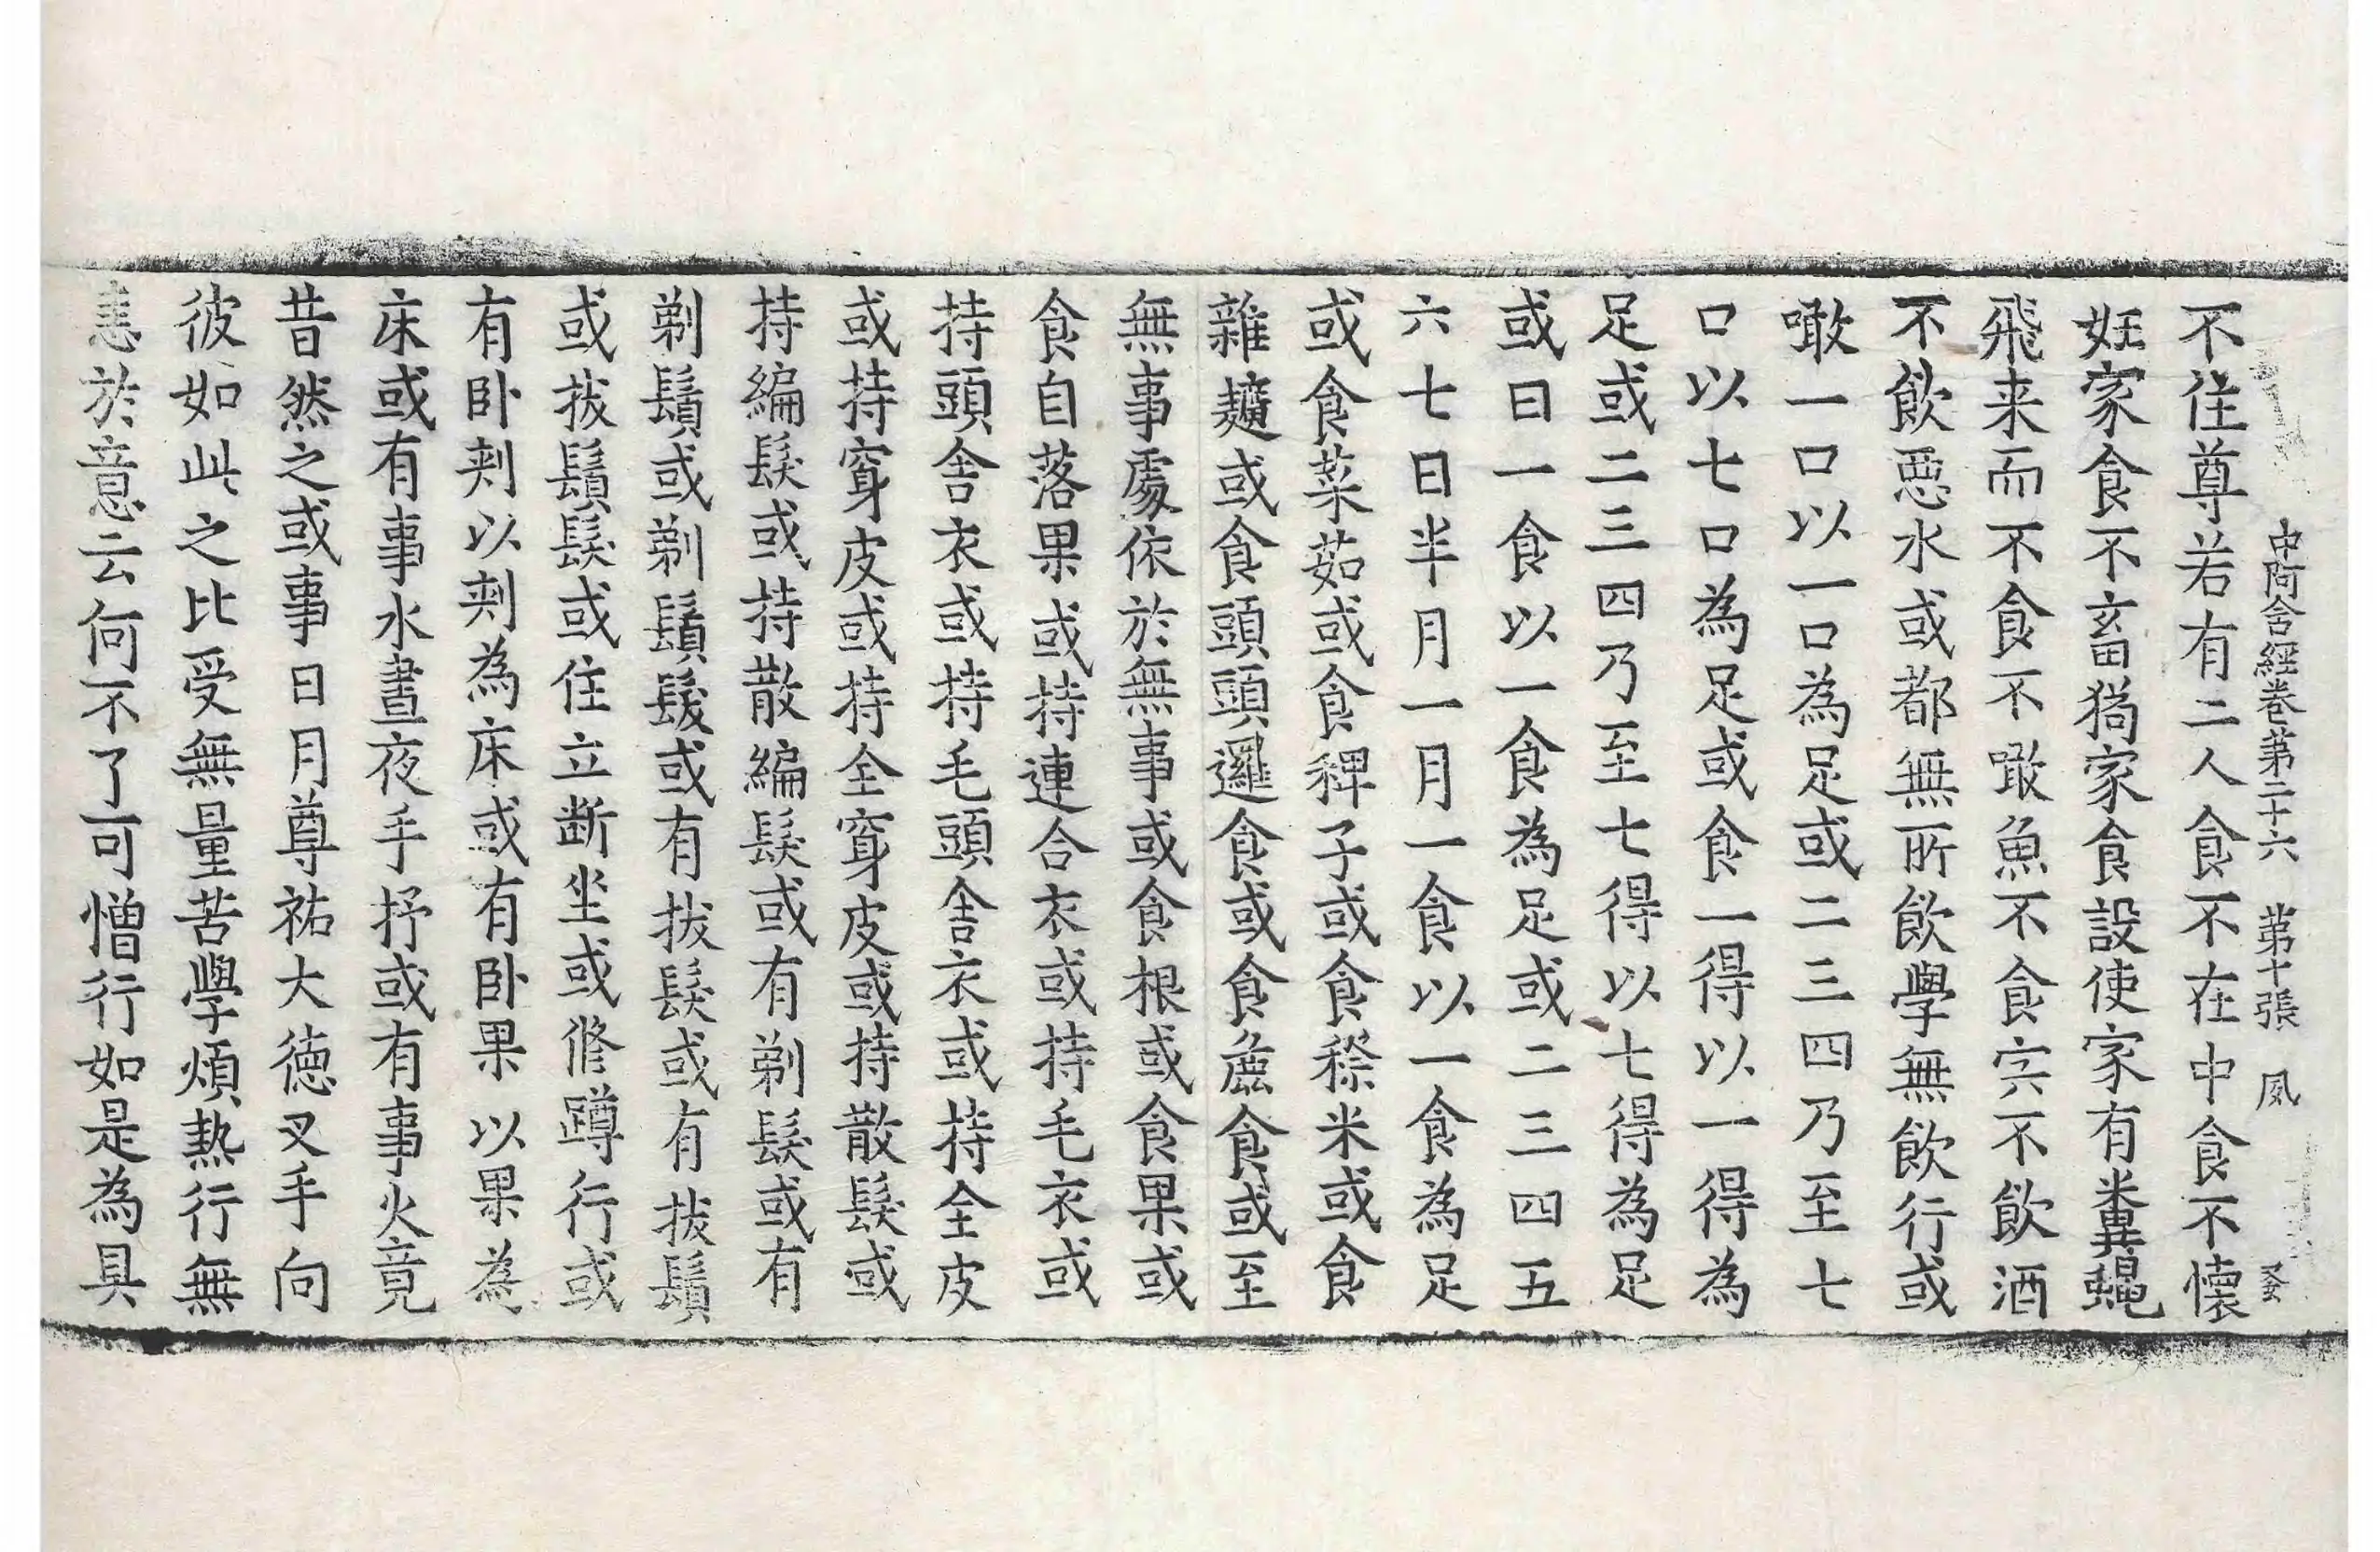 中阿含經卷第二十六 第十張 風
不住尊若有二人食不在中食不懷
妊家食不畜猲家食設使家有糞蠅
飛来而不食不噉魚不食宍不飲酒
不飲惡水或都無所飲學無飲行或
噉一口以一口為足或二三四乃至七
口以七口為足或食一得以一得為
足或二三四乃至七得以七得為足
或日一食以一食為足或二三四五
六七日半月一月一食以一食為足
或食菜茹或食稗子或食穄米或食
雜䵃或食頭頭邏食或食麁食或至
無事處依於無事或食根或食果或
食自落果或持連合衣或持毛衣或
持頭舍衣或持毛頭舍衣或持全皮
或持穿皮或持全穿皮或持散髮或
持編髮或持散編髮或有剃髮或有
剃鬚或剃鬚髮或有拔髮或有拔鬚
或拔鬚髮或住立断坐或修蹲行或
有卧刾以刾為床或有卧果以果為
床或有事水晝夜手抒或有事火竟
昔然之或事日月尊祐大德叉手向
彼如此之比受無量苦學煩熱行無
恚於意云何不了可憎行如是為具